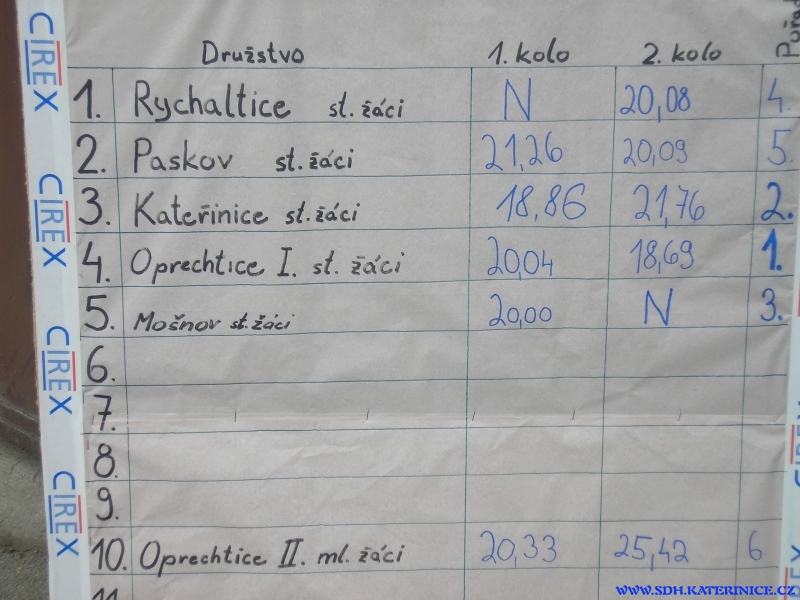 Družstvo 1. kolo 2. kolo
1. Rychaltice st. žáci N 20,08 4.
2. Paskov st. žáci 21,26 20,09 5.
3. Kateřinice st. žáci 18,86 21,76 2.
4. Oprechtice I. st. žáci 20,04 18,69 1.
5. Mošnov st. žáci 20,00 N 3.
6.
7.
8.
9.
10. Oprechtice II. ml. žáci 20,33 25,42 6
11.
CIREX
CIREX
CIREX
CIREX
WWW.SDH.KATERINICE.CZ